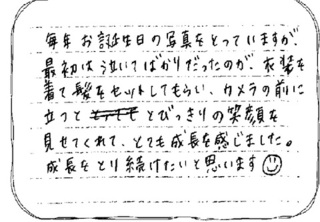 毎年お誕生日の写真をとっていますが、
最初は泣いてばかりだったのが、衣装を
着て髪をセットしてもらい、カメラの前に
立つと とびっきりの笑顔を
見せてくれて、とても成長を感じました。
成長をとり続けたいと思います☺